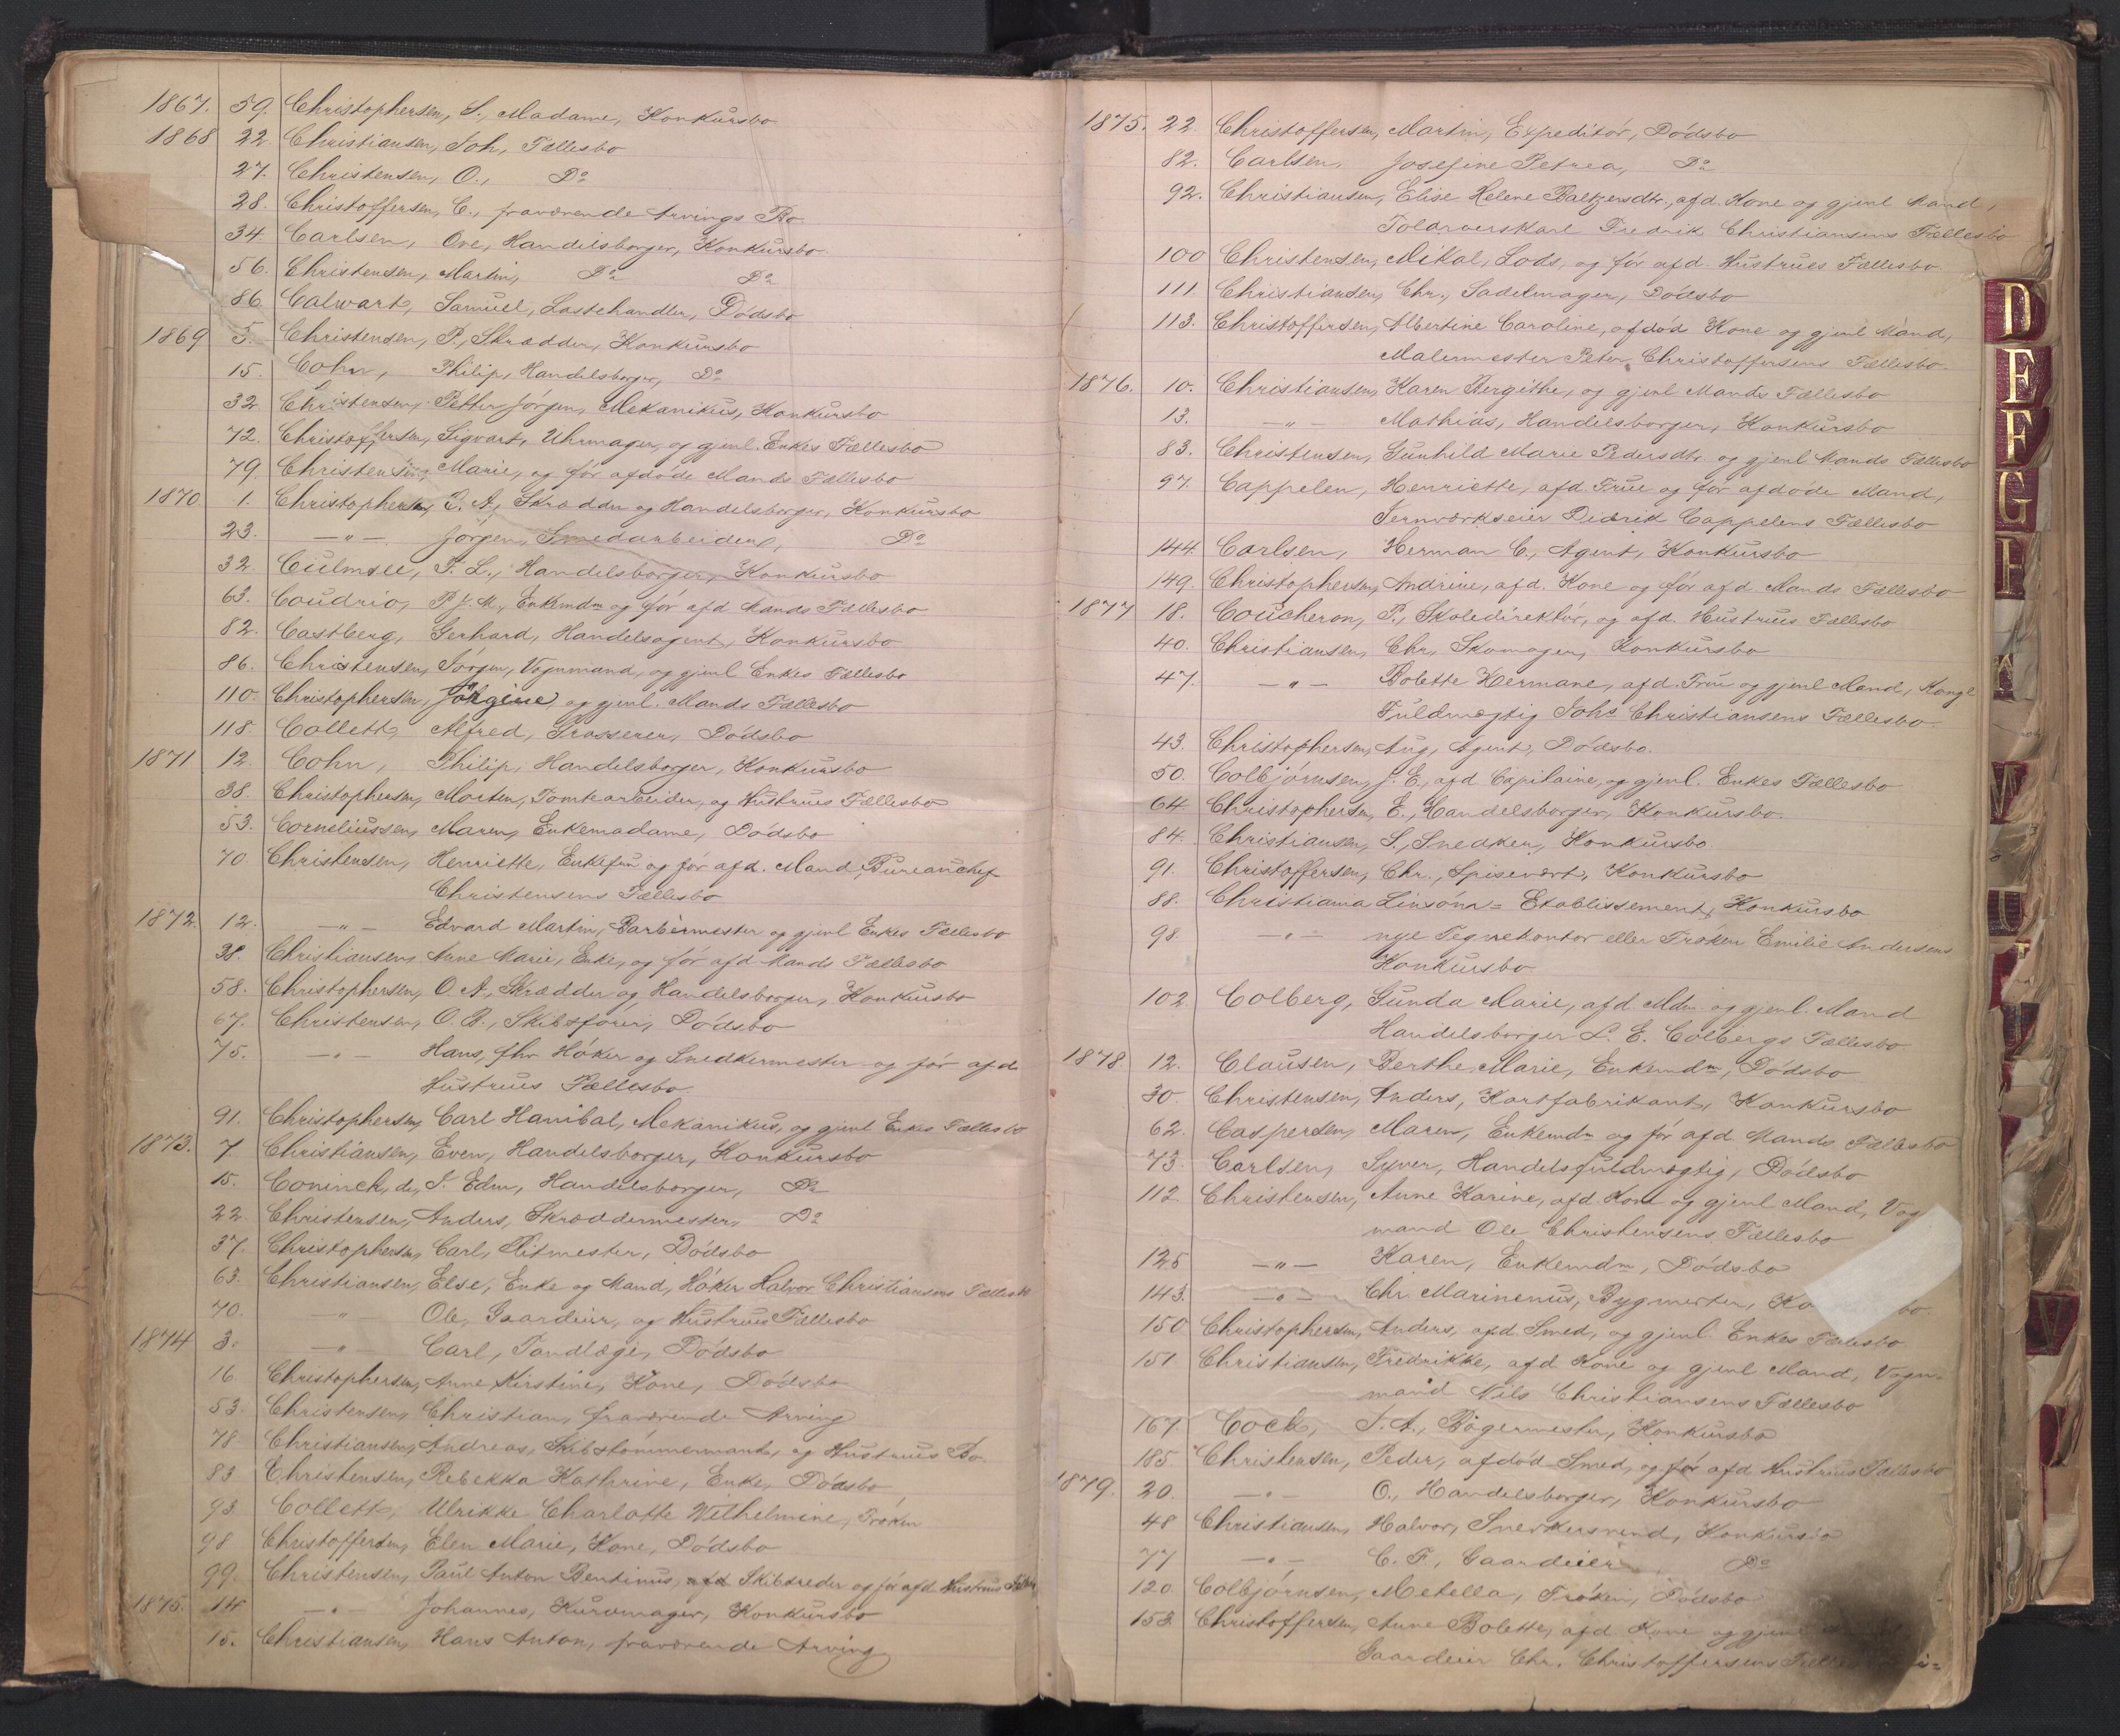 1867. 59. Christophersen, S., Madame, Konkursbo
1868 22 Christiansen, Joh, Fællesbo
27. Christensen, O., Do
28. Christoffersen, C., fraværende Arvings Bo
34. Carlsen, Ove, Handelsborger, Konkursbo.
56. Christensen, Martin, Do Do
86. Calwart, Samuel, Lastehandler, Dødsbo
1869 5. Christensen, P., Skrædder, Konkursbo
15. Cohn, Philip, Handelsborger, Do
32 Christensen, Petter Jørgen, Mekanikus, Konkursbo
72. Christoffersen, Sigvart, Uhrmager, og gjenl. Enkes Fællesbo
79. Christensen, Marie, og før afdøde Mands Fællesbo
1870. 1. Christophersen, O. A., Skrædder og Handelsborger, Konkursbo
23. —"— Jørgen, Smedarbeider, Do
32. Culmsee, F. L., Handelsborger, Konkursbo
63. Coudrio, Enkemdm og før afd Mands Fællesbo
82. Castberg, Gerhard, Handelsagent, Konkursbo
86. Christensen, Jørgen, Vognmand, og gjenl Enkes Fællesbo
110. Christophersen, Jørgine, og gjenl. Mands Fællesbo
118. Collett, Alfred, Grosserer, Dødsbo
1871 12. Cohn, Philip, Handelsborger, Konkursbo
38. Christophersen, Morten, Tomtearbeider, og Hustrues Fællesbo
53. Corneliussen, Maren, Enkemadame, Dødsbo
70. Christensen, Henriette, Enkefru og før afd. Mand, Bureauchef
Christensens Fællesbo
1872. 12. —"— Edvard Martin, Barbermester og gjenl Enkes Fællesbo
38. Christiansen, Anne Marie, Enke, og før afd Mands Fællesbo
58. Christophersen, O. A., Skrædder og Handelsborger, Konkursbo
67. Christensen, O. B., Skibsfører, Dødsbo
75. —"— Hans, fhv Høker og Snedkermester og før afd
Hustrues Fællesbo
91. Christophersen, Carl Hanibal, Mekanikus, og gjenl Enkes Fællesbo
1873. 7 Christiansen, Even, Handelsborger, Konkursbo
15. Coninck, de, J. Edm, Handelsborger, Do
22 Christensen, Anders, Skræddermester, Do
37. Christophersen, Carl, Ritmester, Dødsbo
63. Christiansen, Else, Enke og Mand, Høker Halvor Christiansens Fællesb
70. —"— Ole, Gaardeier, og Hustrues Fællesbo
1874 3. —"— Carl, Tandlæge, Dødsbo
16 Christophersen, Anne Kirstine, Kone, Dødsbo
53. Christensen, Christian, fraværende Arving
78 Christiansen, Andreas, Skibstømmermand, og Hustrues Bo.
83 Christensen, Rebekka Kathrine, Enke, Dødsbo
93 Collett, Ulrikke Charlotte Wilhelmine, Frøken
98 Christoffersen, Elen Marie, Kone, Dødsbo
99. Christensen, Paul Anton Bentinus, afd Skibsreder og før afd Hustrues
1875. 14 —"— Johannes, Kurvmager, Konkursbo
15. Christiansen, Hans Anton, fraværende Arving
1875. 22. Christoffersen, Martin, Expeditør, Dødsbo
82. Carlsen, Josefine Petrea, Do
92. Christiansen, Elise Helene Baltzersdtr., afd. Kone og gjenl Mand,
Fredrik Christiansens Fællesbo
100 Christensen, Mikal, Lods, og før afd. Hustrues Fællesbo
111. Christiansen, Chr., Sadelmager, Dødsbo
113. Christoffersen, Albertine Caroline, afdød Kone og gjenl Mand,
Malermester Peter Christoffersens Fællesbo.
1876. 10. Christiansen, Karen Bergithe, og gjenl Mands Fællesbo
13. —"— Mathias, Handelsborger, Konkursbo
83. Christensen, Gunhild Marie Pedersdtr. og gjenl Mands Fællesbo
97. Cappelen, Henriette, afd. Frue og før afdøde Mand,
Jernværkseier Didrik Cappelens Fællesbo
144. Carlsen, Herman C., Agent, Konkursbo
149. Christophersen, Andrine, afd. Kone og før afd. Mands Fællesbo
1877 18. Coucheron, P., Skoledirektør, og afd. Hustrues Fællesbo
40. Christiansen, Chr, Skomager, Konkursbo
47. —"— Bolette Hermane, afd. Frue og gjenl Mand, Kongl
Fuldmægtig Johs Christiansens Fællesbo.
43. Christophersen, Aug, Agent, Dødsbo.
50. Colbjørnsen, J. E., afd Capitaine, og gjenl. Enkes Fællesbo
64. Christophersen, E., Handelsborger, Konkursbo.
84. Christiansen, S., Snedker, Konkursbo.
91. Christoffersen, Chr., Spisevært, Konkursbo
88. Christiania Linsøm= Etablissement, Konkursbo
98. —"— nye Tegnekontor eller Frøken Emilie Andersens
Konkursbo
102. Colberg, Gunda Marie, afd. Mdm. og gjenl. Mand
Handelsborger L. E. Colbergs Fællesbo.
1878. 12. Clausen, Berthe Marie, Enkemdm, Dødsbo
30. Christensen, Anders, Kortfabrikant, Konkursbo
62. Caspersen, Maren, Enkemdm og før afd Mands Fællesbo
73. Carlsen, Syver, Handelsfuldmægtig, Dødsbo
112. Christensen, Anne Karine, afd. Kone og gjenl Mand, Vog
mand Ole Christensens Fællesbo
125 —"— Karen, Enkemdm, Dødsbo
143. —"— Chr. Marinenus, Bygmester, Ko bo.
150 Christophersen, Anders, afd. Smed, og gjenl. Enkes Fællesbo
151. Christiansen, Fredrikke, afd Kone og gjenl Mand, Vogn=
mand Nils Christiansens Fællesbo
167. Cock, J. A., Bøgermester, Konkursbo
185 Christensen, Peder, afdød Smed, og før afd Hustrues Fællesbo
1879. 20. —"— O., Handelsborger, Konkursbo
48 Christiansen, Halvor, Snedkersvend, Konkursbo
77 —"— C. F., Gaardeier Do
120 Colbjørnsen, Metella, Frøken, Dødsbo
153 Christoffersen, Anne Bolette, afd. Kone og gjenl
Gaardeier Chr. Christoffersens
D
E
F
G